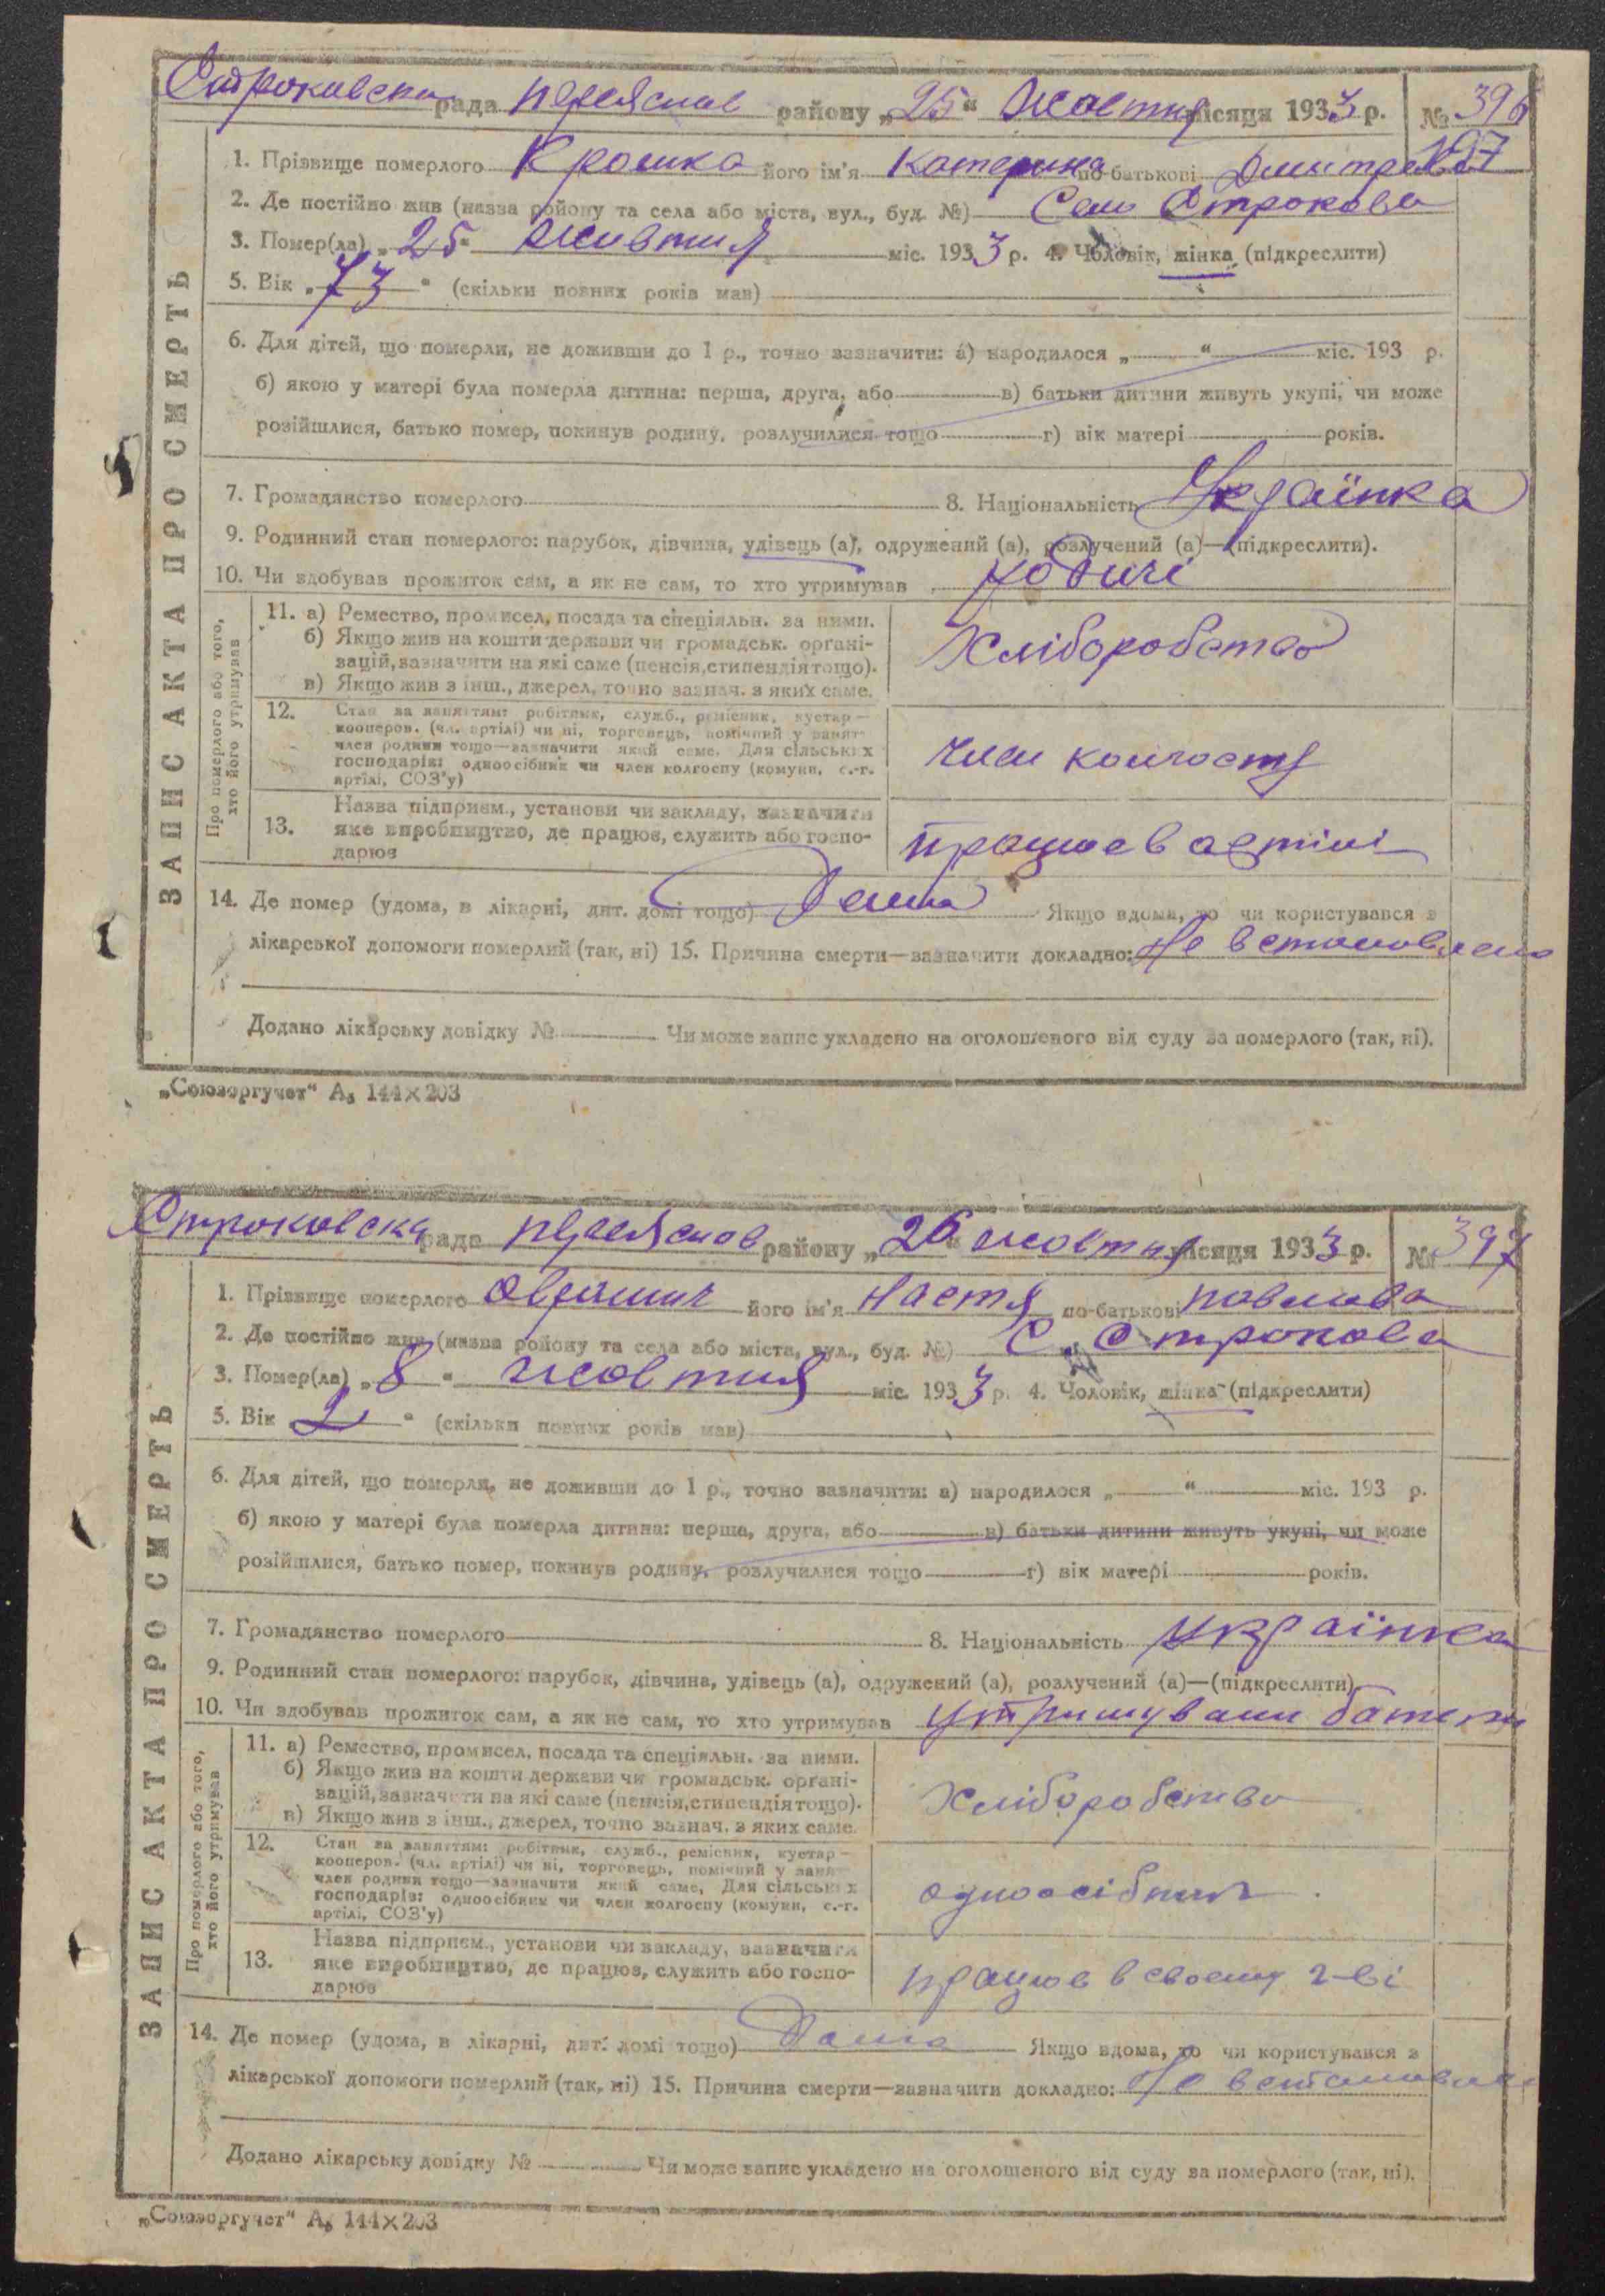 Строковска рада переяслав району „25“ жовтня місяця 1933 р. № 396
1. Прізвище померлого Крошка його ім'я Катерина по-батькові Дмитрова 27
2. Де постійно жив (назва району та села або міста, вул., буд. №) Село Строкова
3. Помер(ла) „25“ жовтня міс. 1933 р. 4. Чоловік, жінка (підкреслити)
5. Вік „73“ (скільки повних років мав)
6. Для дітей, що померли, не доживши до 1 р., точно зазначити: а) народилося „ “ міс. 193 р.
б) якою у матері була померла дитина: перша, друга, або в) батьки дитини живуть укупі, чи може
розійшлися, батько помер, покинув родину, розлучилися тощо г) вік матері років.
7. Громадянство померлого 8. Національність Українка
9. Родинний стан померлого: парубок, дівчина, удівець (а), одружений (а), розлучений (а)—(підкреслити).
10. Чи здобував прожиток сам, а як не сам, то хто утримував родичі
ЗАПИС АКТА ПРО СМЕРТЬ
Про померлого або того, хто його утримував
11. а) Ремество, промисел, посада та спеціяльн. за ними.
б) Якщо жив на кошти держави чи громадськ. органі-
зацій, зазначити на які саме (пенсія, стипендія тощо).
в) Якщо жив з інш., джерел, точно зазнач. з яких саме.
Хліборобство
12. Стан за заняттям: робітник, служб., ремісник, кустар—
кооперов. (чл. артілі) чи ні, торговець, помічний у занят-
член родини тощо—зазначити який саме. Для сільських
господарів: одноосібник чи член колгоспу (комуни, с.-г.
артілі, СОЗ'у)
член колгоспу
13. Назва підприєм., установи чи закладу, зазначити
яке виробництво, де працює, служить або госпо-
дарює
працює в артілі
14. Де помер (удома, в лікарні, дит. домі тощо) Дома Якщо вдома, то чи користувався з
лікарської допомоги померлий (так, ні) 15. Причина смерти—зазначити докладно: Не встановлено
Додано лікарську довідку № Чи може запис укладено на оголошеного від суду за померлого (так, ні).
„Союзоргучет“ А₅ 144×203
Строковска рада переяслав району „26“ жовтня місяця 1933 р. № 397
1. Прізвище померлого його ім'я Настя по-батькові Павлова
2. Де постійно жив (назва району та села або міста, вул., буд. №) С. Строкова
3. Помер(ла) „8“ жовтня міс. 1933 р. 4. Чоловік, жінка (підкреслити)
5. Вік „2“ (скільки повних років мав)
6. Для дітей, що померли, не доживши до 1 р., точно зазначити: а) народилося „ “ міс. 193 р.
б) якою у матері була померла дитина: перша, друга, або в) батьки дитини живуть укупі, чи може
розійшлися, батько помер, покинув родину, розлучилися тощо г) вік матері років.
7. Громадянство померлого 8. Національність українка
9. Родинний стан померлого: парубок, дівчина, удівець (а), одружений (а), розлучений (а)—(підкреслити)
10. Чи здобував прожиток сам, а як не сам, то хто утримував утримували батьки
ЗАПИС АКТА ПРО СМЕРТЬ
Про померлого або того, хто його утримував
11. а) Ремество, промисел, посада та спеціяльн. за ними.
б) Якщо жив на кошти держави чи громадськ. органі-
зацій, зазначити на які саме (пенсія, стипендія тощо).
в) Якщо жив з інш., джерел, точно зазнач. з яких саме.
Хліборобство
12. Стан за заняттям: робітник, служб., ремісник, кустар—
кооперов. (чл. артілі) чи ні, торговець, помічний у занят-
член родини тощо—зазначити який саме, Для сільських
господарів: одноосібник чи член колгоспу (комуни, с.-г.
артілі, СОЗ'у)
одноосібник
13. Назва підприєм., установи чи закладу, зазначити
яке виробництво, де працює, служить або госпо-
дарює
працює в своєму г-ві
14. Де помер (удома, в лікарні, дит. домі тощо) Дома Якщо вдома, то чи користувався з
лікарської допомоги померлий (так, ні) 15. Причина смерти—зазначити докладно: Не встановлено
Додано лікарську довідку № Чи може запис укладено на оголошеного від суду за померлого (так, ні).
„Союзоргучет“ А₅ 144×203